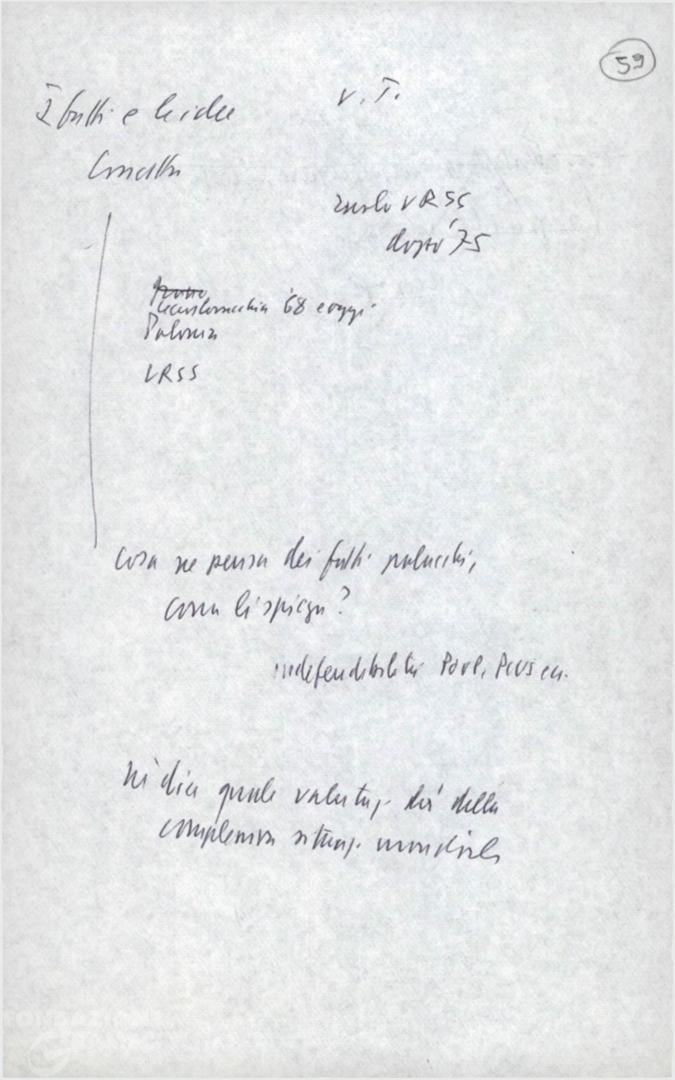 59
I fatti e le idee
V. T.
ruolo URSS
dopo '75
Cecoslovacchia '68 e oggi
Polonia
URSS
Cosa ne pensa dei fatti polacchi,
come li spiega?
indefendibilità
Mi dica quale valutaz. dà della
complessa situaz. mondiale